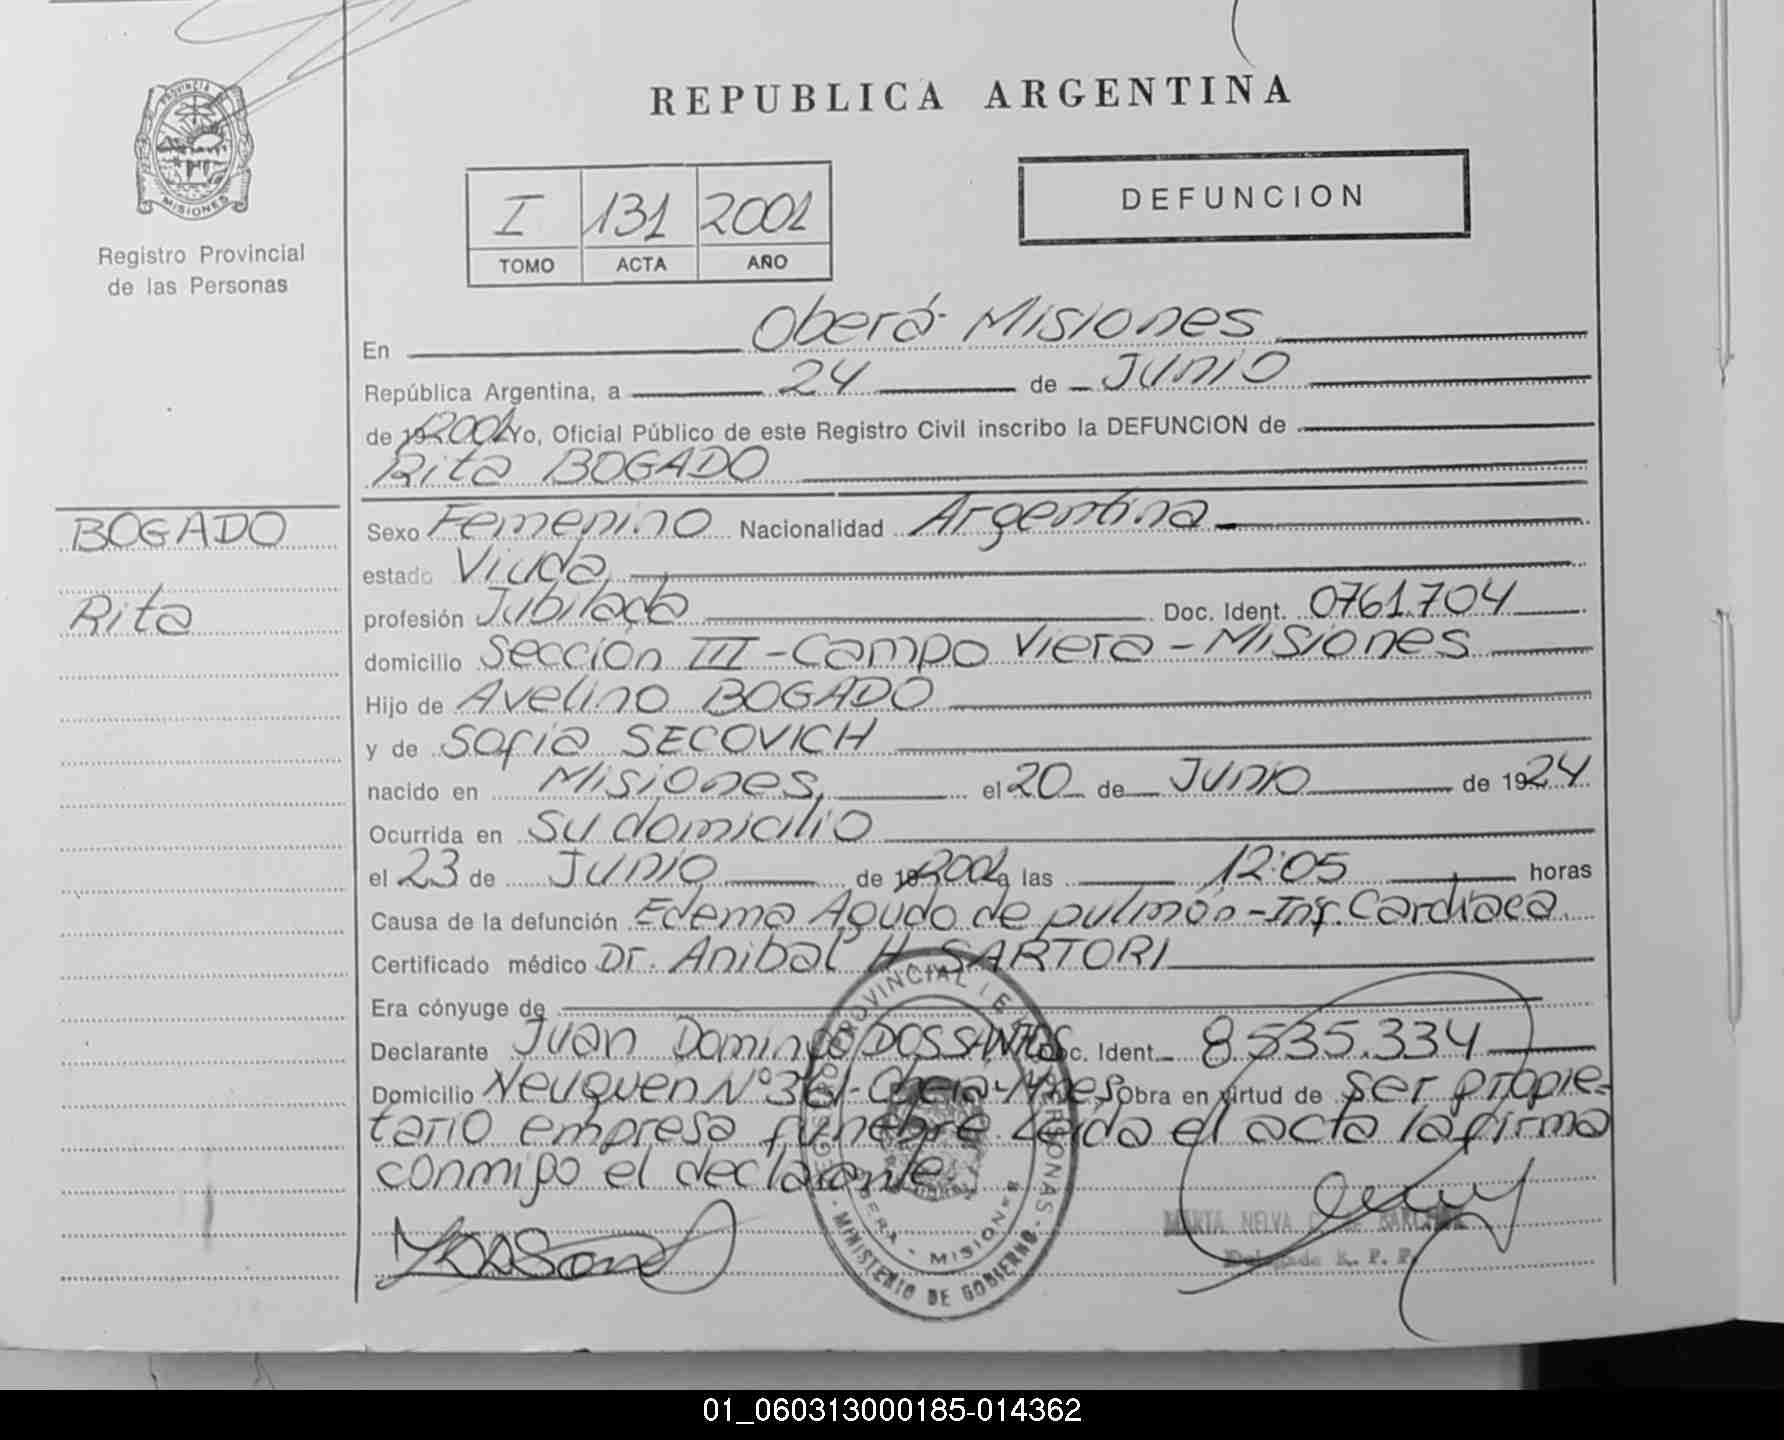 PROVINCIA
MISIONES
Registro Provincial
de las Personas
REPUBLICA ARGENTINA
I 131 2001
TOMO ACTA AÑO
DEFUNCION
En Oberá- Misiones
República Argentina, a 24 de Junio
de 19 2001 Yo, Oficial Público de este Registro Civil inscribo la DEFUNCION de
Rita BOGADO
BOGADO
Rita
Sexo Femenino Nacionalidad Argentina
estado Viuda
profesión Jubilada Doc. Ident. 0761.704
domicilio Sección III - Campo Viera - Misiones
Hijo de Avelino BOGADO
y de Sofia SECOVICH
nacido en Misiones, el 20 de Junio de 1924
Ocurrida en su domicilio
el 23 de Junio de 19 2001 a las 12:05 horas
Causa de la defunción Edema Agudo de pulmón - Inf. Cardíaca
Certificado médico Dr. Anibal H SARTORI
Era cónyuge de
Declarante Juan Domingo DOSSANTOS Doc. Ident. 8.535.334
Domicilio Neuquen Nº 361 - Obera - Mnes Obra en virtud de ser propie-
tario empresa funebre. Leída el acta la firma
conmigo el declarante
PROVINCIAL DE PERSONAS
OBERA - MISIONES
MINISTERIO DE GOBIERNO
MARTA NELVA
Delegada R. P. P.
01_060313000185-014362